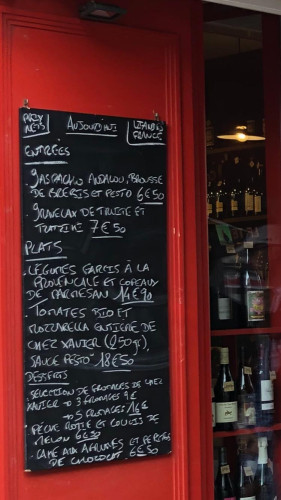 PRIX NETS
AUJOURD'HUI
VIANDE FRANCE
ENTRÉES
. GASPACHO ANDALOU, BROUSSE
DE BREBIS ET PESTO 6€50
. GRAVELAX DE TRUITE ET
7€50
PLATS
. LÉGUMES FARCIS À LA
PROVENÇALE ET COPEAUX
DE PARMESAN 14€90
. TOMATES BIO ET
MOZZARELLA ENTIÈRE DE
CHEZ XAVIER (250gr),
SAUCE PESTO 18€50
DESSERTS
. SELECTION DE FROMAGES DE CHEZ
XAVIER → 3 FROMAGES 9€
→ 5 FROMAGES 14€
. PÊCHE ROTIE ET COULIS DE
MELON 6€50
. CAKE AUX AGRUMES ET PÉPITES
DE CHOCOLAT 6€50